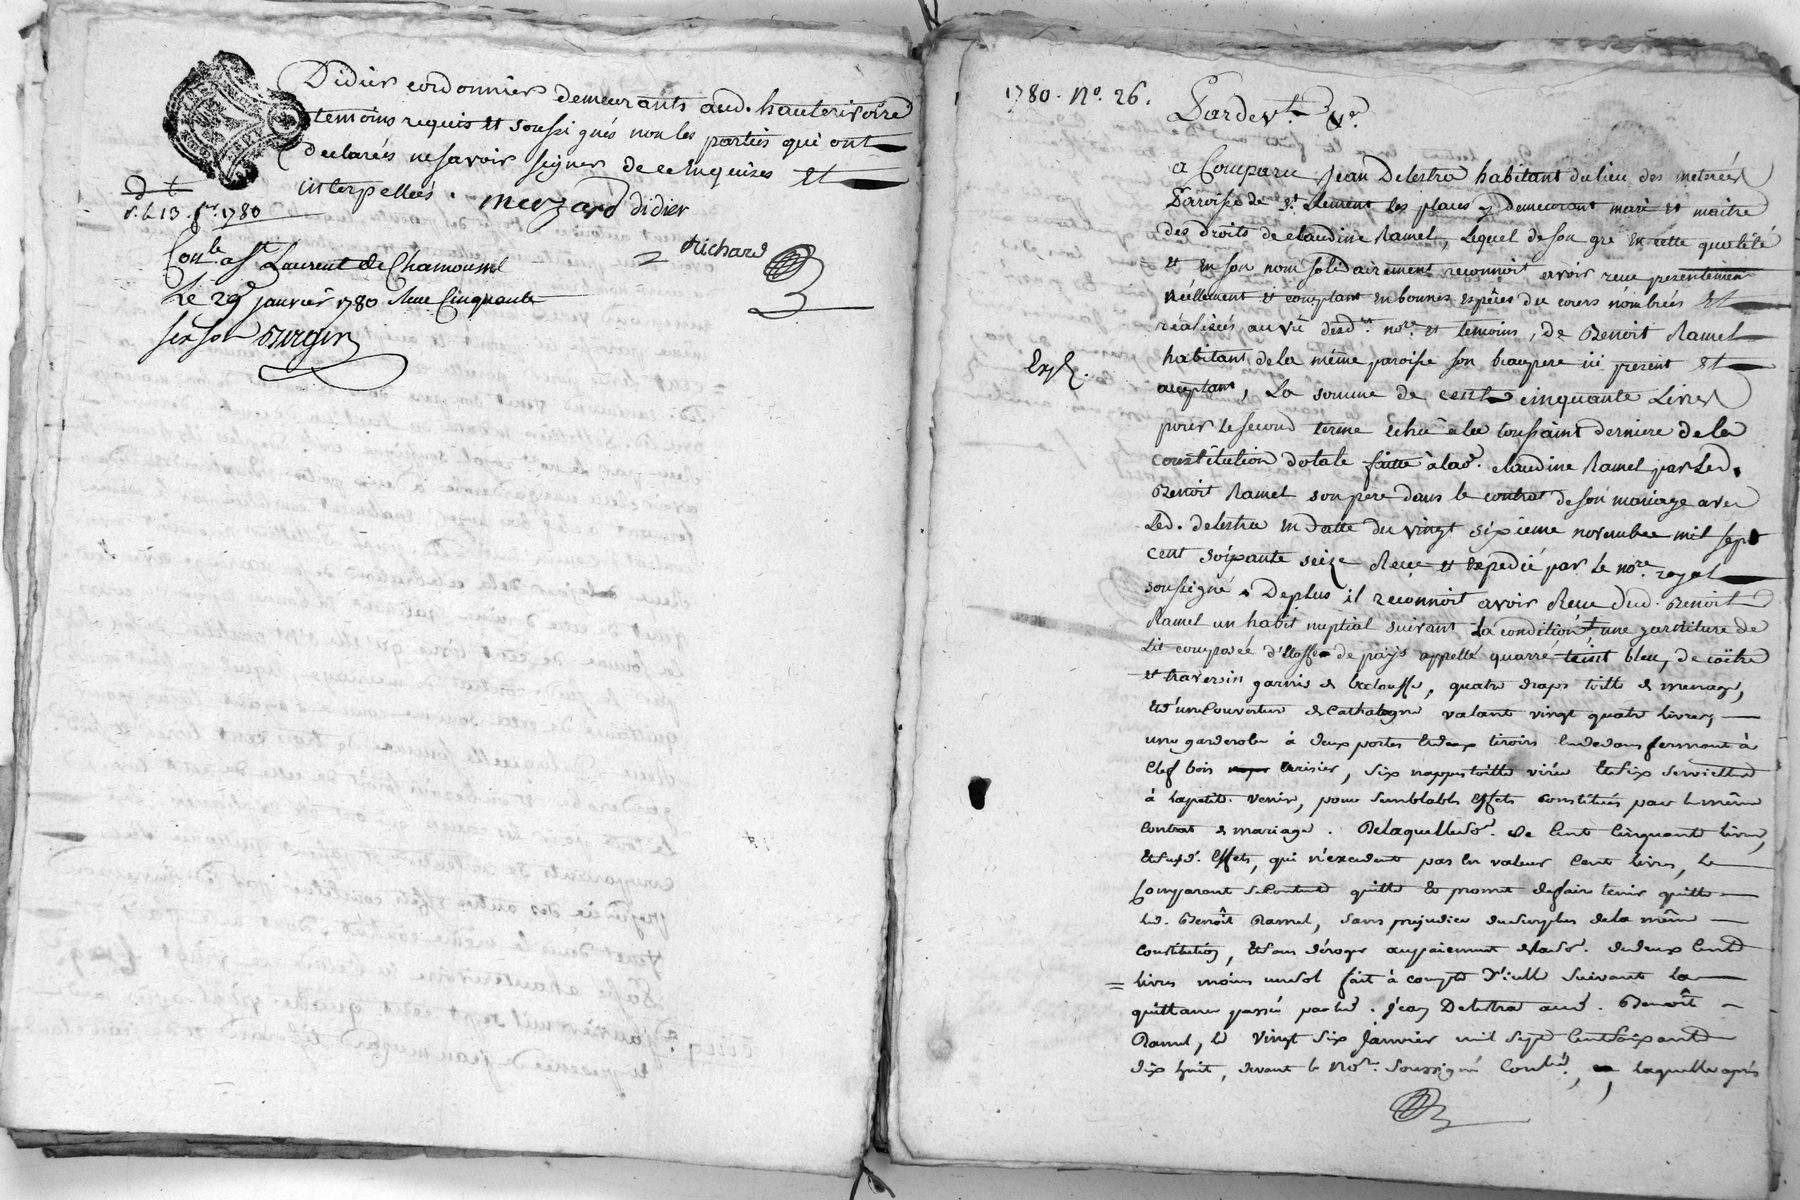 Didier cordonnier demeurants aud. hauterivoire
temoins requis et soussignés non les parties qui ont
declarées ne savoir signer de ce enquises et
interpellées. merzard didier
Richard
v. L 13. fr. 1780
Con.lé a St Laurent de Chamousset
Le 29e janvier 1780 Reçu Cinquante
six sol
1780. No. 26.
Pardevt.
a Comparu Jean Delestra habitant du lieu des meteries
Paroisse de St. clement les places y demeurant mari et maitre
des droits de claudine Ramel, Lequel de son gre en cette qualité
et en son nom solidairement reconnoit avoir reçu presentement
réellement et comptant en bonnes espèces du cours nombrées et
réalisées au vû desd. nore. et temoins, de Benoit Ramel
habitant de la même paroisse son beaupere ici present et
Exp.
acceptant, La somme de cent cinquante Livres
pour le second terme echu à la toussaint derniere de la
constitution dotale faitte à lad. claudine Ramel par Led.
Benoit Ramel son pere dans le contrat de son mariage avec
Led. delestra en datte du vingt sixieme novembre mil sept
cent soixante seize Reçu et expedié par le nore. royal
soussigné. Deplus il reconnoit avoir Reçu dud. Benoit
Ramel un habit nuptial suivant La condition, une garniture de
Lit composée d'étoffe de païs appellé quarre teint bleu, de coëtre
et traversin garnis de baclouffe, quatre draps toille de menage,
et d'une couverture de Cathalogne valant vingt quatre livres,
une garderobe à deux portes et deux tiroirs en dedans fermant à
Clef bois cerisier, six nappes toille virée et six serviettes
à la petite Venise, pour semblables effets constitués par le même
contrat de mariage. De laquelle so. de Cent Cinquante livres,
et susd. effets, qui n'excedent pas en valeur Cent livres, le
Comparant se contente quitte et promet de faire tenir quitte
led. Benoît Ramel, sans prejudice du surplus de la même
constitution, et sans déroger au paiement de la so. de deux Cent
= livres moins un sol fait à compte d'icelle suivant la
quittance passée par led. Jean Delestra aud. Benoît
Ramel, le Vingt six Janvier mil sept Cent soixante
dix huit, devant le Nore. soussigné Conlée., laquelle après